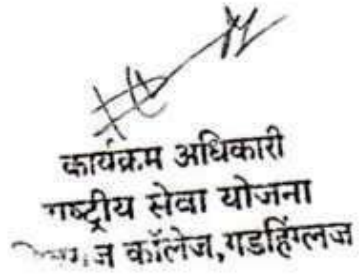 कार्यक्रम अधिकारी
राष्ट्रीय सेवा योजना
कॉलेज,गडहिंग्लज